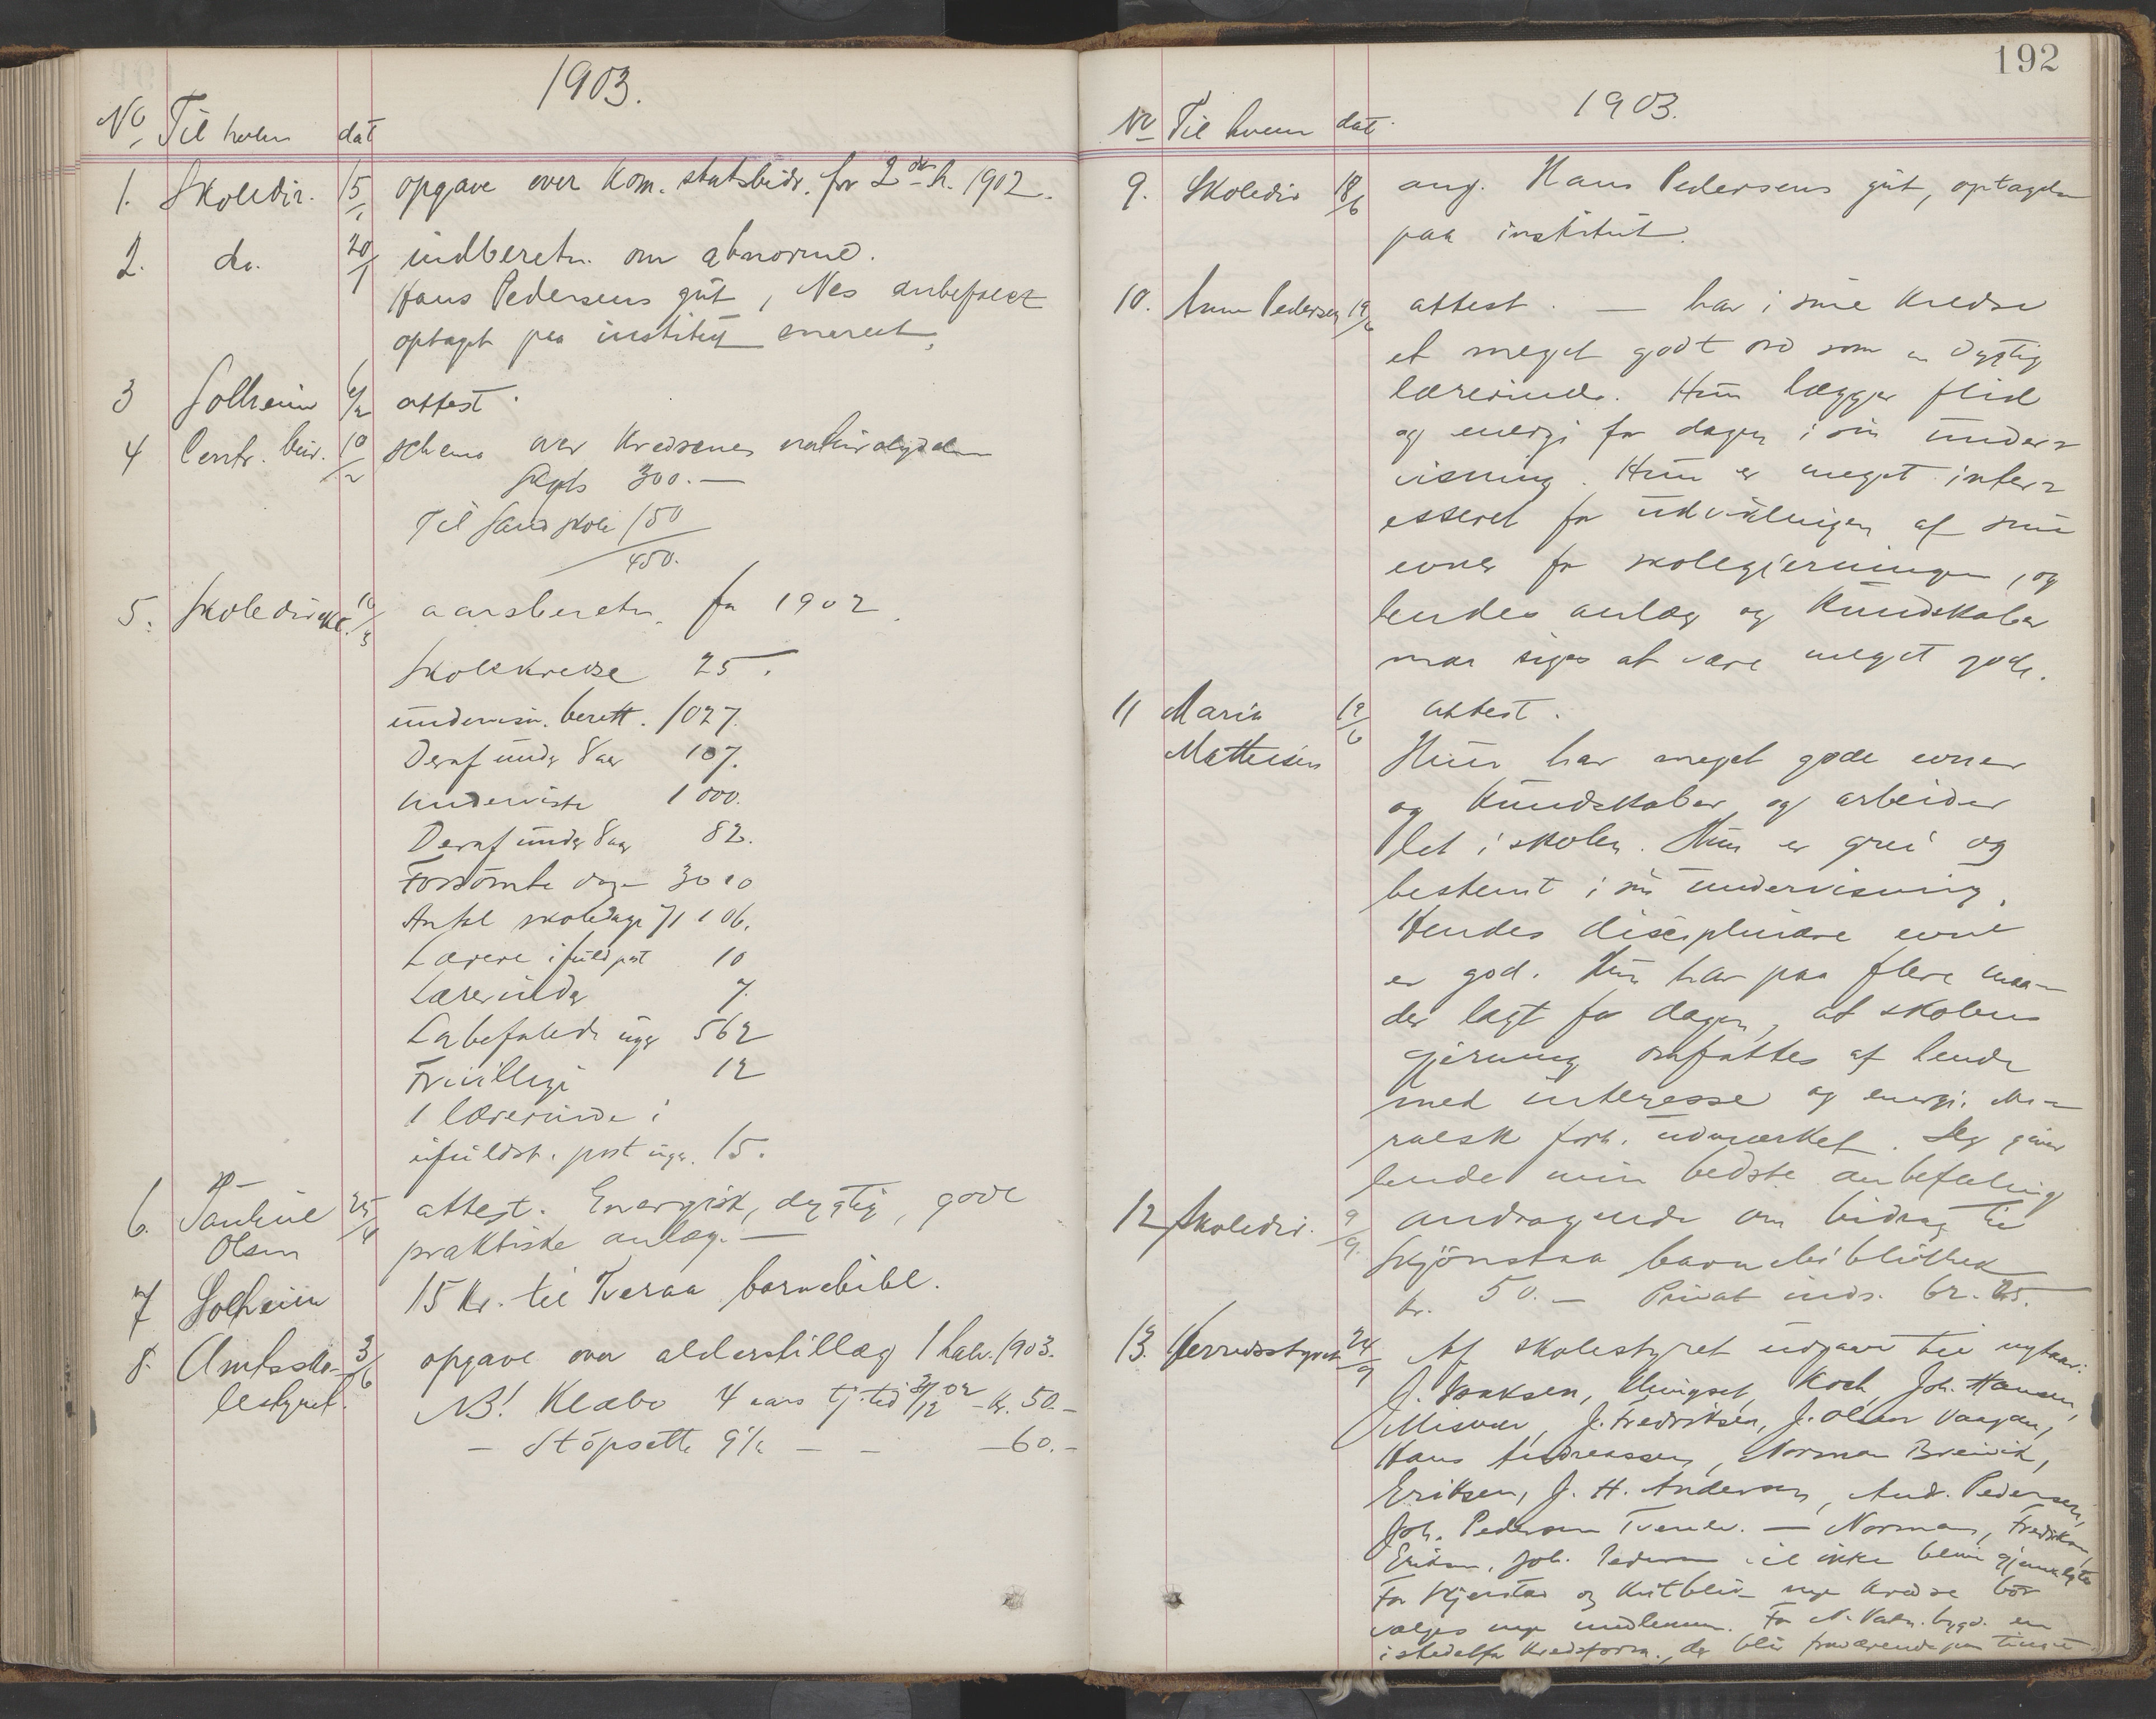 1903.
No. Til hvem dat
1. Skoledir. 15/1 opgave over kom. statsbidr. for 2det h. 1902.
2. do. 20/1 indberetn. om abnorme.
Hans Pedersens gut, Nes anbefalet
optaget paa institut snarest.
3 Solheim 6/2 attest.
4 Centr. bur. 10/2 schema over kredsenes naturalydelser
Sagts 300.—
Til Sands skole 150
450.
5. Skoledirekt. 10/3 aarsberetn. for 1902.
Skolekredse 25.
undervisn. berett. 1027.
Deraf under 8 aar 107.
Underviste 1000.
Deraf under 8 aar 82.
Forsömte dage 3010
Antal skoledage 71106.
Lærere i fuld post 10
Lærerinder 7.
Lovbefalede uger 562
Frivillige 12
1 lærerinde i
ufuldst. post uger 15.
6. Pauline 25/4 attest. Energisk, dygtig, gode
Olsen praktiske anlæg.—
7 Solheim 15 kr. til Tveraa barnebibl.
8. Amtssko- 3/6 opgave over alderstillæg 1 halv. 1903.
lestyret. NB! Klæbo 4 aars tj.tid 31/12 02 – Kr. 50.–
– Stöpsette 9 1/2 – – – 60.–
192
1903.
No Til hvem dat.
9. Skoledir 18/6 ang. Hans Pedersens gut, optagelse
paa institut.
10. Anna Pedersen 19/6 attest. — har i sine kredse
et meget godt ord som en dygtig
lærerinde. Hun lægger flid
og energi for dagen i sin under=
visning. Hun er meget inter=
esseret for udviklingen af sine
evner for skolegjerningen, og
hendes anlæg og kundskaber
maa siges at være meget gode.
11 Maria 19/6 attest.
Mathisen Hun har meget gode evner
og kundskaber og arbeider
let i skolen. Hun er grei og
bestemt i sin undervisning.
Hendes disciplinære evne
er god. Hun har paa flere maa-
der lagt for dagen, at skolens
gjerning omfattes af hende
med interesse og energi. Mo=
ralsk forh. udmerket. Jeg giver
hende min bedste anbefaling
12 Skoledir. 9/9. andragende om bidrag til
Skjönstaa barnebibliothek
kr. 50.— Privat inds. kr. 25.
13. Herredsstyret 24/9 Af skolestyret udgaar til nytaar:
J. Isaksen, Koch, Joh. Hansen,
Misvær, J. Fredriksen, J. Olsen Vaagan,
Hans Andreassen, Norman Breivik,
Eriksen, J. H. Andersen, And. Pedersen,
Joh. Pedersen — Norman, Fredriksen,
Eriksen, Joh. Pedersen vil ikke blive gjenvalgte
For Kjerstad og nye kredse bör
vælges nye medlemmer. For N. Valn. bygd. en
istedetfor kredsform., der blir fraværende paa tinget